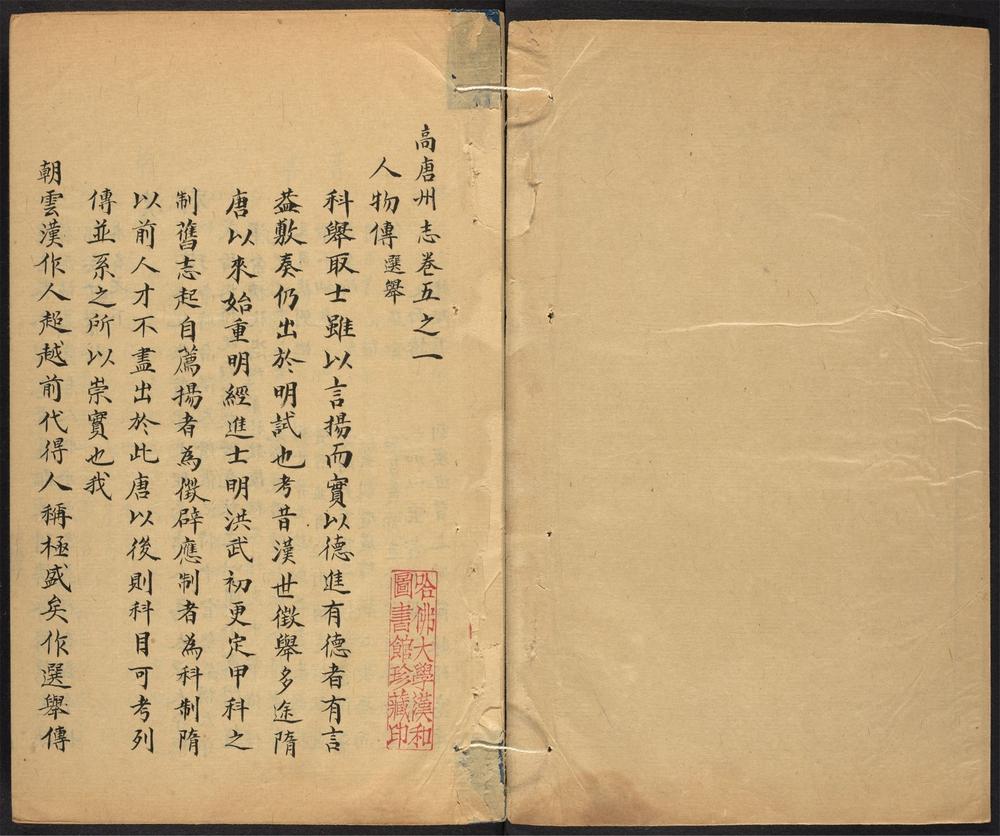 高唐州志卷五之一
人物傳選舉
科舉取士雖以言揚而實以德進有德者有言
葢敷奏仍出於明試也考昔漢世徵舉多途隋
唐以來始重明經進士明洪武初更定甲科之
制舊志起自薦揚者為徵辟應制者為科制隋
以前人才不盡出於此唐以後則科目可考列
傳並系之所以崇實也我
朝雲漢作人超越前代得人稱極盛矣作選舉傳
哈佛大學漢和
圖書館珍藏印